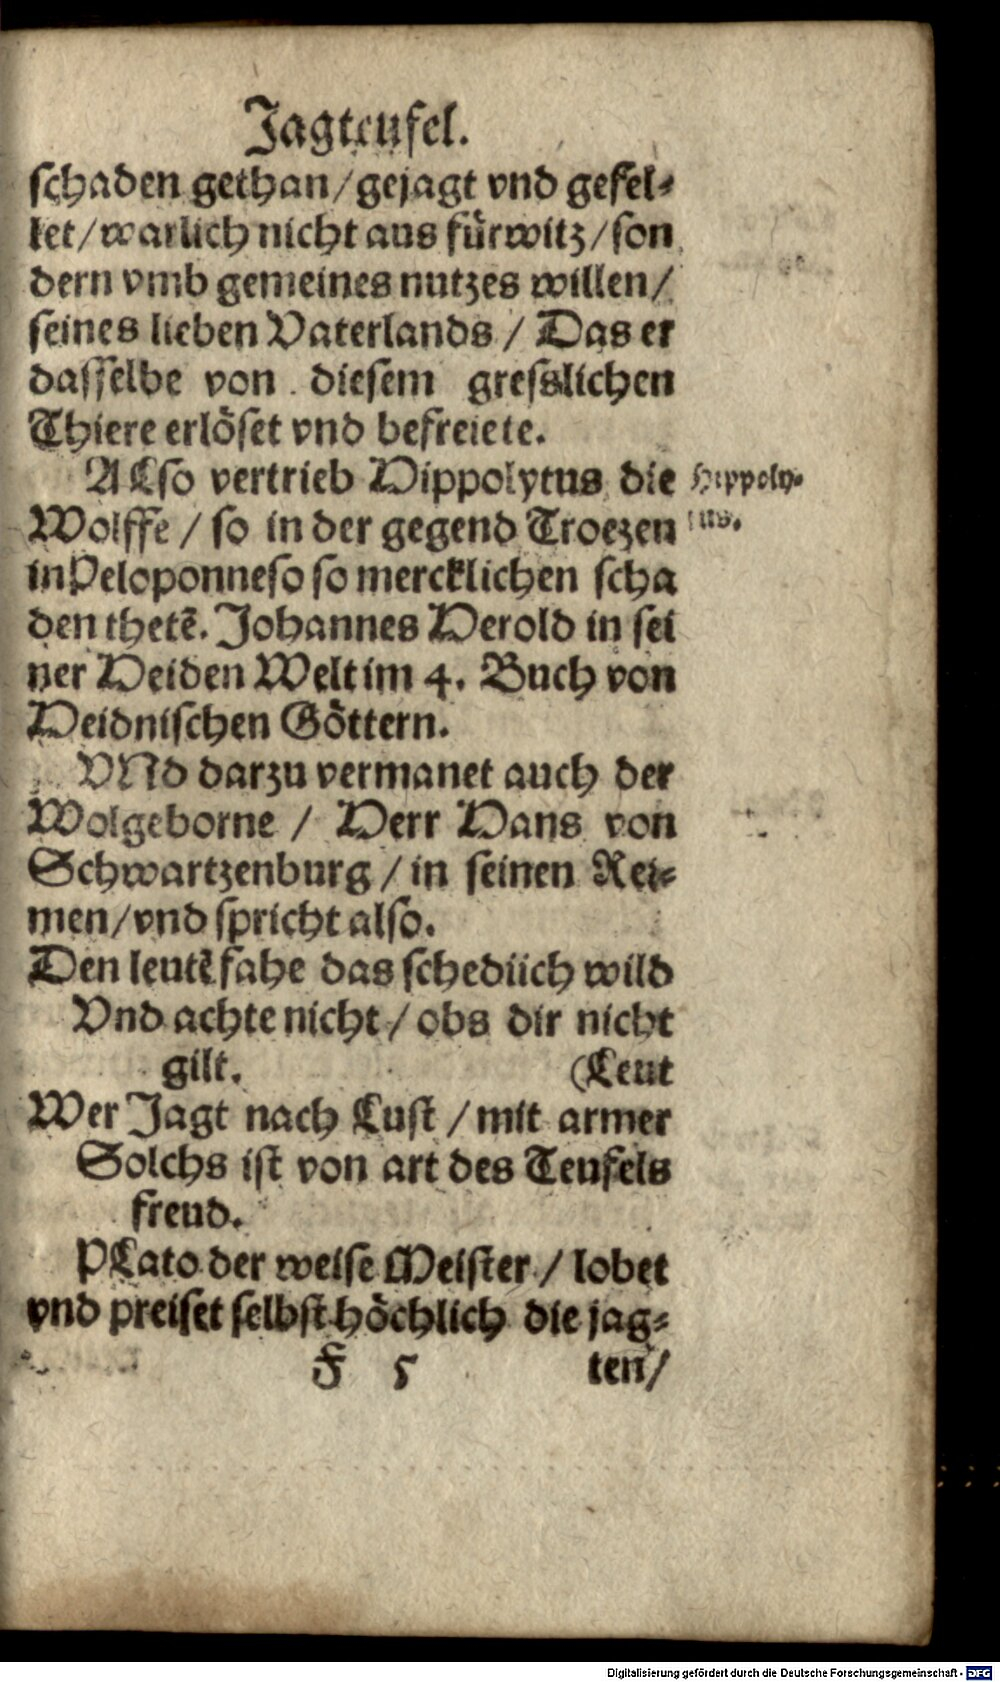 Jagteufel.
schaden gethan/gejagt vnd gefel⸗
let/warlich nicht aus fürwitz/son
dern vmb gemeines nutzes willen/
seines lieben Vaterlands / Das er
dasselbe von diesem gresslichen
Thiere erlöset vnd befreiete.
ALso vertrieb Hippolytus die
Hippoly⸗
tus.
Wolffe / so in der gegend Troezen
in Peloponneso so mercklichen scha
den thetē. Johannes Herold in sei
ner Heiden Welt im 4. Buch von
Heidnischen Göttern.
VNd darzu vermanet auch der
Wolgeborne / Herr Hans von
Schwartzenburg / in seinen Rei⸗
men/vnd spricht also.
Den leutē fahe das schedlich wild
Vnd achte nicht / obs dir nicht
gilt. (Leut
Wer Jagt nach Lust / mit armer
Solchs ist von art des Teufels
freud.
PLato der weise Meister / lobet
vnd preiset selbst höchlich die jag⸗
F 5 ten/
Digitalisierung gefördert durch die Deutsche Forschungsgemeinschaft - DFG